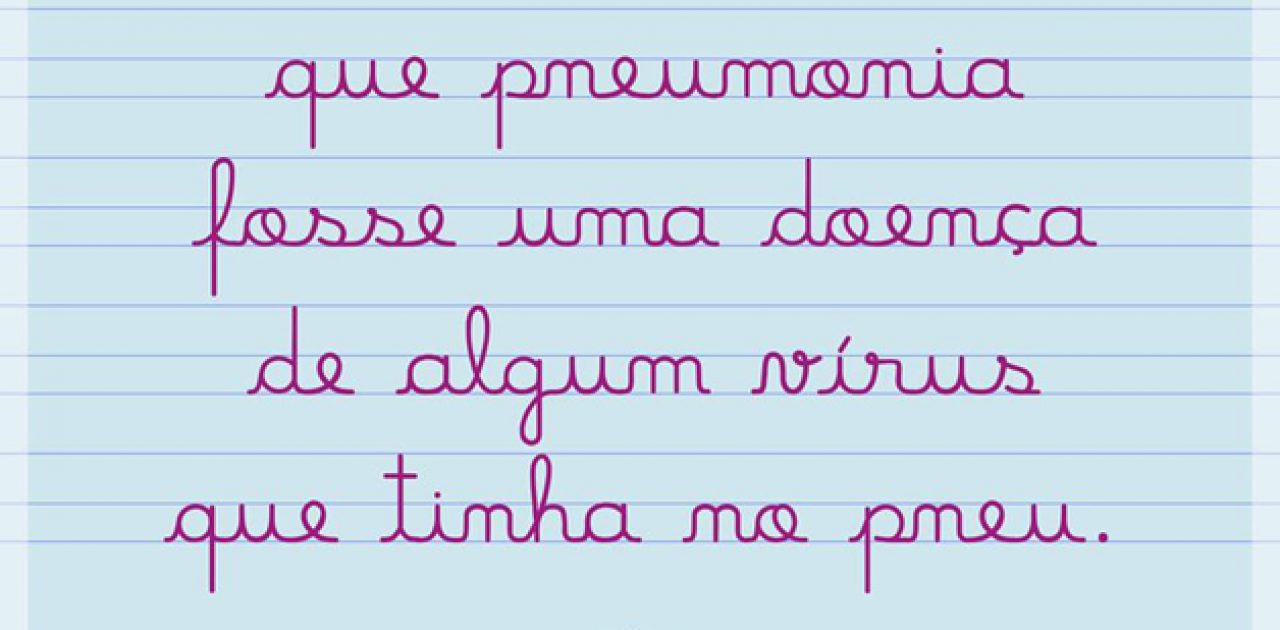 que pneumonia
fosse uma doença
de algum vírus
que tinha no pneu.